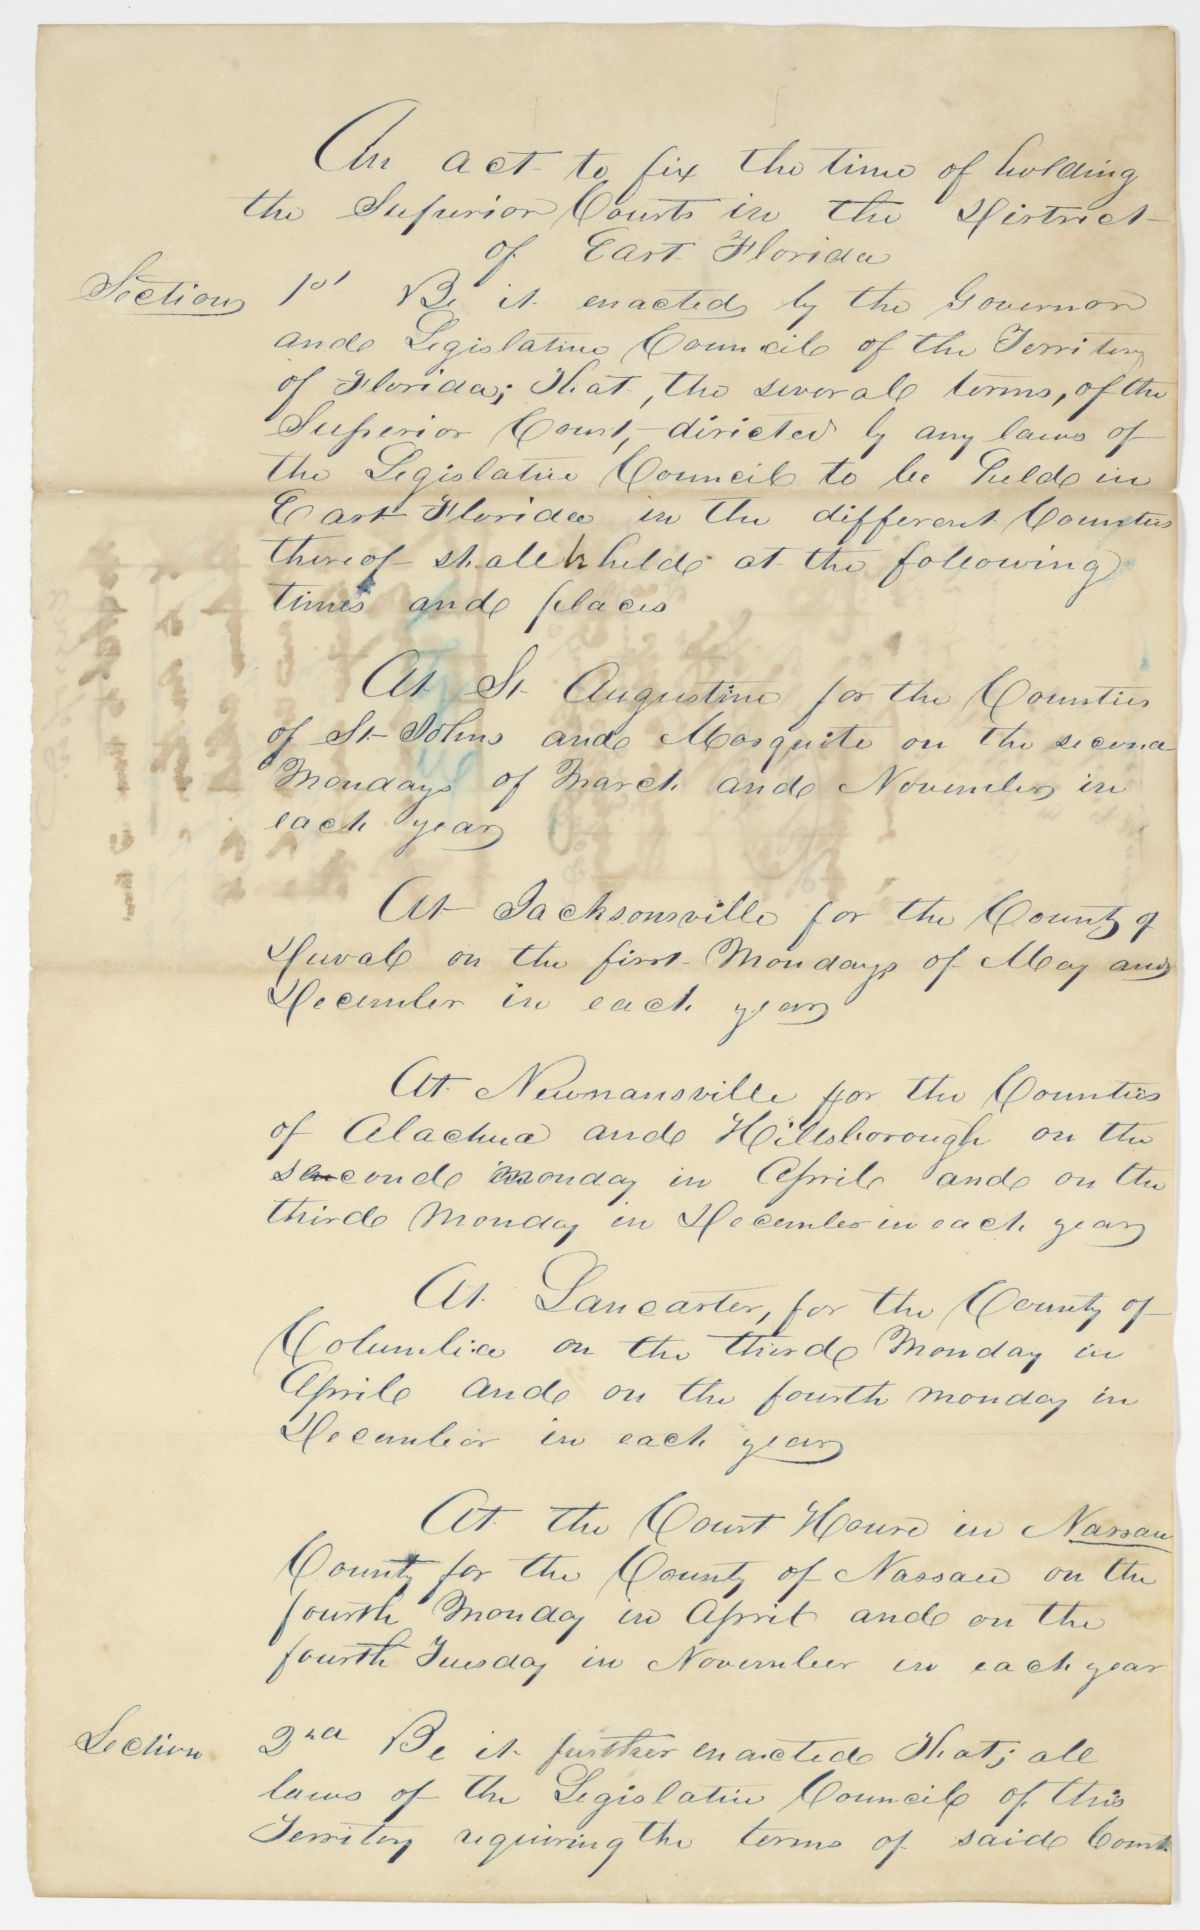 An act to fix the time of holding
the Superior Courts in the District
of East Florida
Section 1st Be it enacted by the Governor
and Legislative Council of the Territory
of Florida; That, the several terms, of the
Superior Court, directed by any laws of
the Legislative Council to be held in
East Florida in the different Counties
thereof shall be held at the following
times and places
At St Augustine for the Counties
of St Johns and Mosquito on the second
Mondays of March and November in
each year
At Jacksonsville for the County of
Duval on the first Mondays of May and
December in each year
At Newnansville for the Counties
of Alachua and Hillsborough on the
second monday in April and on the
third Monday in December in each year
At Lancaster, for the County of
Columbia on the third Monday in
April and on the fourth monday in
December in each year
At the Court House in Nassau
County for the County of Nassau on the
fourth Monday in April and on the
fourth Tuesday in November in each year
Section 2nd Be it further enacted That; all
laws of the Legislative Council of this
Territory requiring the terms of said Court